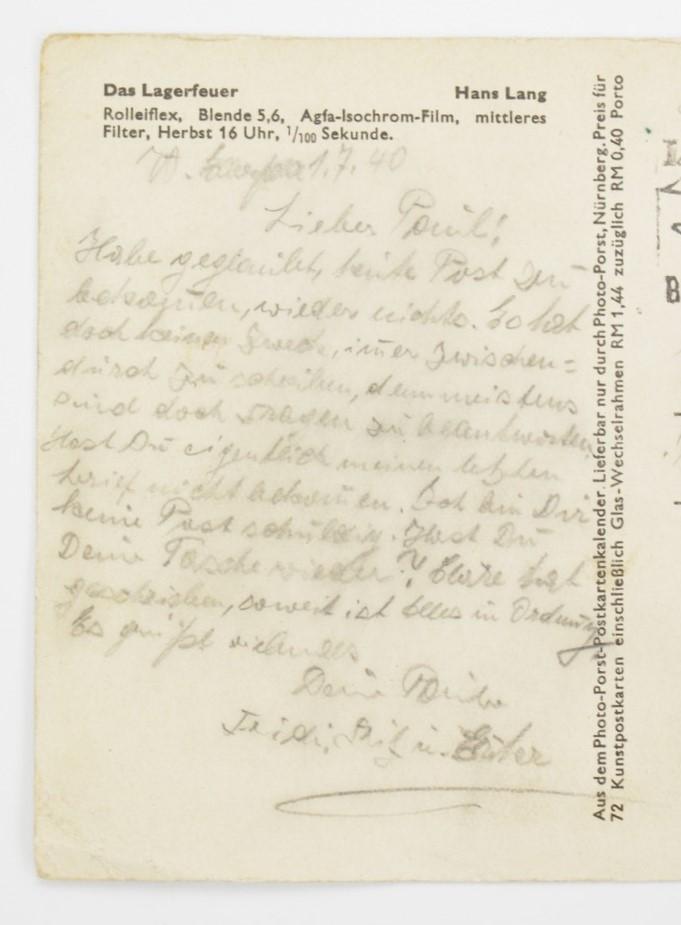 Das Lagerfeuer Hans Lang
Rolleiflex, Blende 5,6, Agfa-Isochrom-Film, mittleres
Filter, Herbst 16 Uhr, 1/100 Sekunde.
1.7.40
Lieber Paul!
Habe geglaubt, heute Post zu
bekommen, wieder nichts. So hat
doch keinen Zweck, im̄er zwischen=
durch zu schreiben, denn meistens
sind doch Fragen zu beantworten.
Hast Du eigentlich meinen letzten
brief nicht bekom̄en. Ich bin Dir
keine Post schuldig. Hast Du
Deine Tasche wieder? hat
geschrieben, soweit ist alles in Ordnung
Es grüßt vielmals
Deine
u.
Aus dem Photo-Porst-Postkartenkalender Lieferbar nur durch Photo-Porst, Nürnberg. Preis für
72 Kunstpostkarten einschließlich Glas-Wechselrahmen RM 1,44 zuzüglich RM 0,40 Porto